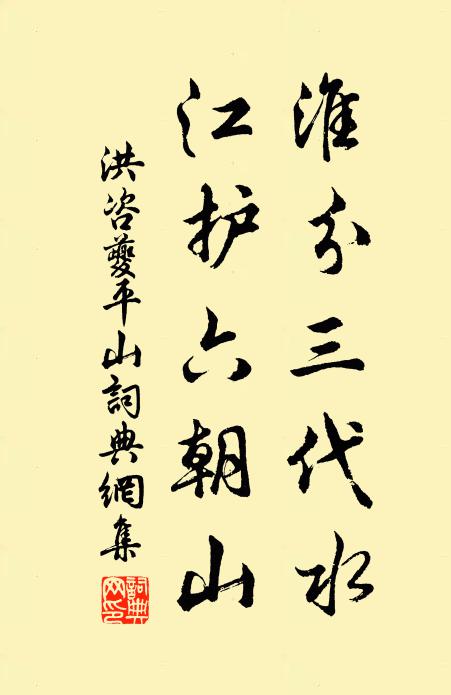 淮分三代水
江护六朝山
洪咨夔平山詞典網集
詞典網印